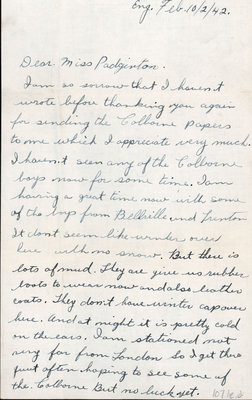 Eng. Feb. 10/2/42.
Dear Miss Padginton.
I am so sorrow that I havent
wrote before thanking you again
for sending the Colborne papers
to me which I appreciate very much.
I havent seen any of the Colborne
boys now for some time. I am
having a great time now with some
of the boys from Bellville and Trenton
It dont seem like winter over
here with no snow. But there is
lots of mud. They are give us rubber
boots to wear now and also leather
coats. They dont have winter cap over
here. And at night it is pretty cold
on the ears. I am stationed not
very far from London So I get there
quit often hoping to see some of
the Colborne But no luck yet.